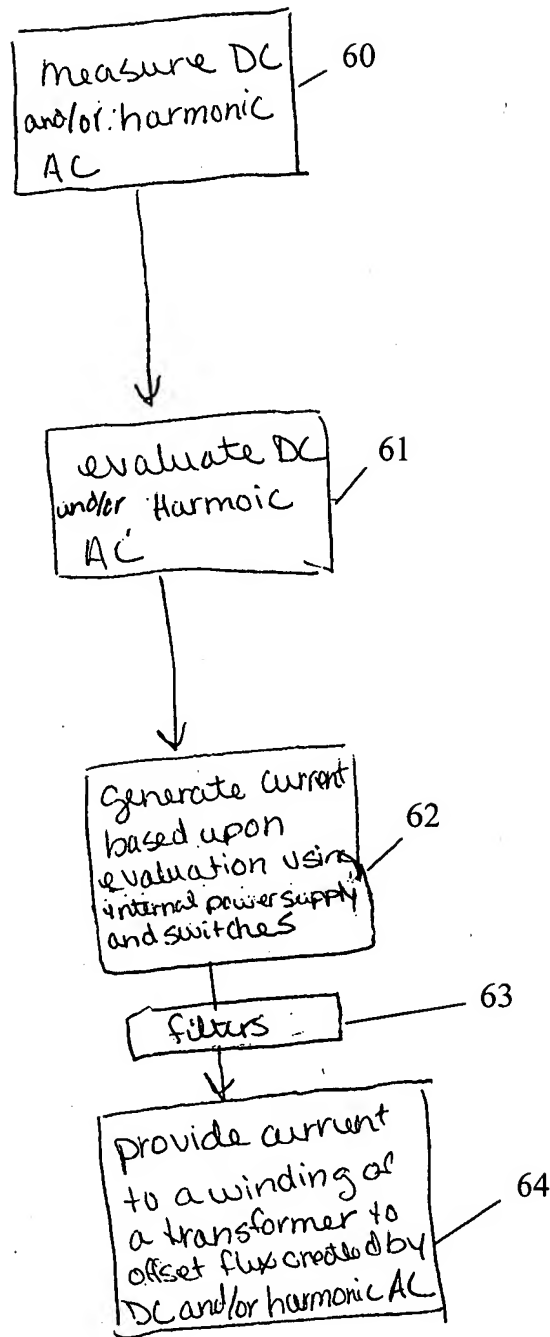 measure DC
and/or harmonic
AC
60
evaluate DC
and/or Harmoic
AC
61
Generate current
based upon
evaluation using
internal power supply
and switches
62
filters
63
provide current
to a winding of
a transformer to
offset flux created by
DC and/or harmonic AC
64